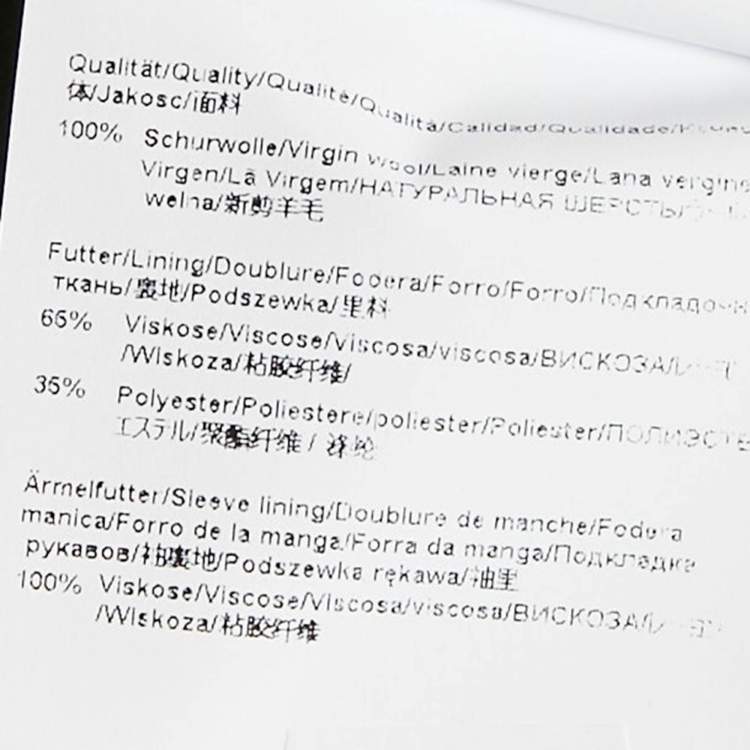 Qualität/Quality/Qualité/Qualità/Calidad/Qualidade/
体/Jakosc/面料
100% Schurwolle/Virgin wool/Laine vierge/Lana vergine
Virgen/Lã Virgem/НАТУРАЛЬНАЯ ШЕРСТЬ/
welna/新剪羊毛
Futter/Lining/Doublure/Fodera/Forro/Forro/Подкладочн
ткань/裏地/Podszewka/里料
65% Viskose/Viscose/Viscosa/viscosa/ВИСКОЗА/
/Wiskoza/粘胶纤维/
35% Polyester/Poliestere/poliester/Poliester/ПОЛИЭСТЕ
エステル/聚酯纤维/ 涤纶
Ärmelfutter/Sleeve lining/Doublure de manche/Fodera
manica/Forro de la manga/Forra da manga/Подкладка
рукавов/袖裏地/Podszewka rękawa/袖里
100% Viskose/Viscose/Viscosa/viscosa/ВИСКОЗА/
/Wiskoza/粘胶纤维